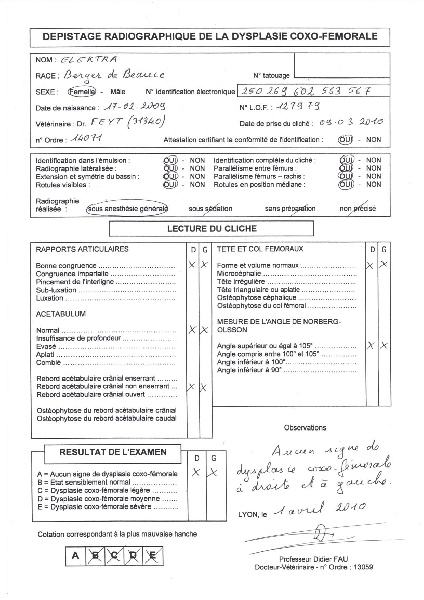 DEPISTAGE RADIOGRAPHIQUE DE LA DYSPLASIE COXO-FEMORALE
NOM : ELEKTRA
RACE : Berger de Beauce N° tatouage :
SEXE : Femelle - Mâle N° Identification électronique 250 269 602 563 567
Date de naissance : 17-02-2009 N° L.O.F. : 127979
Vétérinaire : Dr. FEYT (31340) Date de prise du cliché : 09-03-2010
N° Ordre : 14071 Attestation certifiant la conformité de l'identification : OUI - NON
Identification dans l'émulsion : OUI - NON Identification complète du cliché : OUI - NON
Radiographie latéralisée : OUI - NON Parallélisme entre fémurs : OUI - NON
Extension et symétrie du bassin : OUI - NON Parallélisme fémurs – rachis : OUI - NON
Rotules visibles : OUI - NON Rotules en position médiane : OUI - NON
Radiographie
réalisée : sous anesthésie générale sous sédation sans préparation non précisé
LECTURE DU CLICHE
RAPPORTS ARTICULAIRES D G
Bonne congruence X X
Congruence imparfaite
Pincement de l'interligne
Sub-luxation
Luxation
ACETABULUM
Normal X X
Insuffisance de profondeur
Evasé
Aplati
Comblé
Rebord acétabulaire crânial enserrant
Rebord acétabulaire crânial non enserrant X X
Rebord acétabulaire crânial ouvert
Ostéophytose du rebord acétabulaire crânial
Ostéophytose du rebord acétabulaire caudal
TETE ET COL FEMORAUX D G
Forme et volume normaux X X
Microcéphalie
Tête irrégulière
Tête triangulaire ou aplatie
Ostéophytose céphalique
Ostéophytose du col fémoral
MESURE DE L'ANGLE DE NORBERG-
OLSSON
Angle supérieur ou égal à 105° X X
Angle compris entre 100° et 105°
Angle inférieur à 100°
Angle inférieur à 90°
RESULTAT DE L'EXAMEN D G
A = Aucun signe de dysplasie coxo-fémorale X X
B = Etat sensiblement normal
C = Dysplasie coxo-fémorale légère
D = Dysplasie coxo-fémorale moyenne
E = Dysplasie coxo-fémorale sévère
Cotation correspondant à la plus mauvaise hanche
A B C D E
Observations
Aucun signe de
dysplasie coxo-fémorale
à droite et à gauche.
LYON, le 1 avril 2010
Professeur Didier FAU
Docteur-Vétérinaire - n° Ordre : 13059